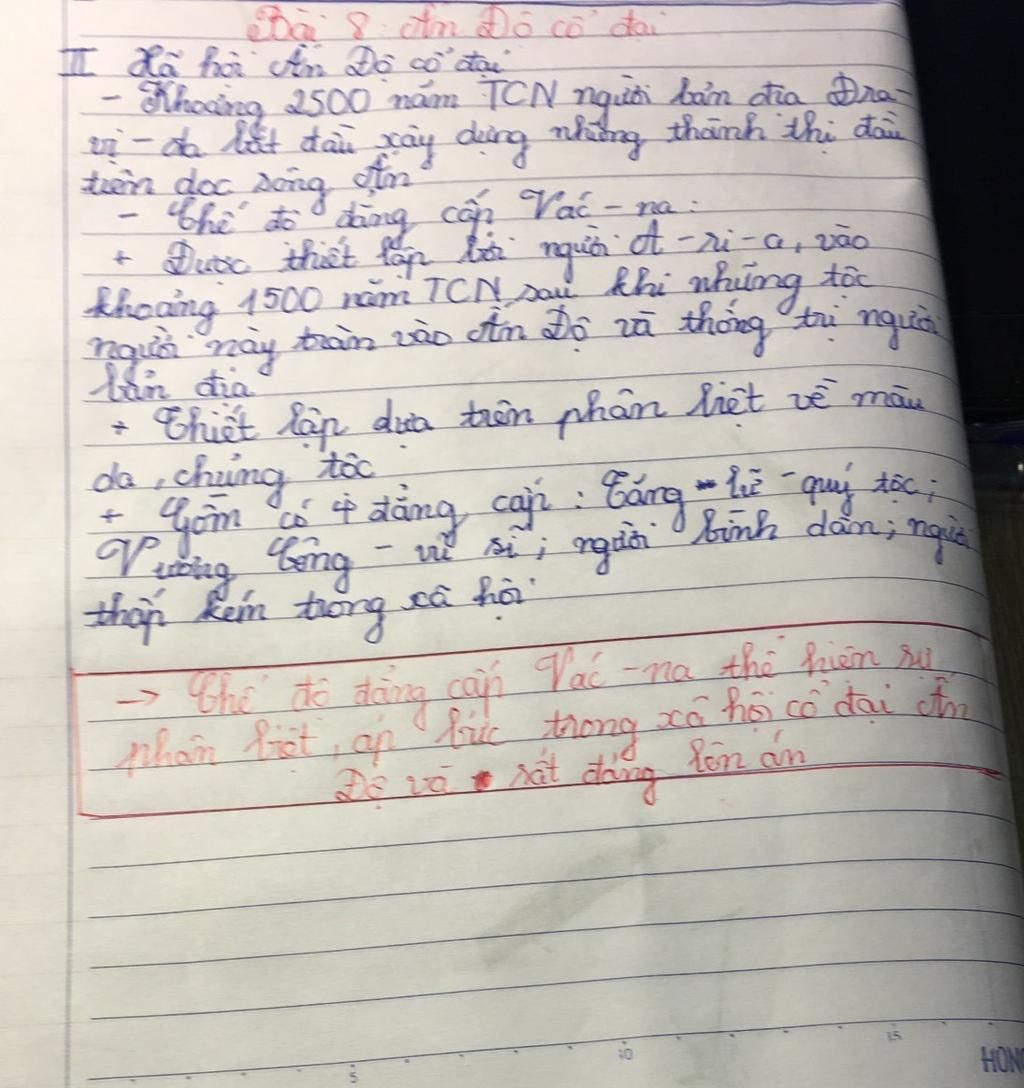 Bài 8: Ấn Độ cổ đại
II Xã hội Ấn Độ cổ đại
- Khoảng 2500 năm TCN người bản địa Đra-
vi-đa bắt đầu xây dựng những thành thị đầu
tiên dọc sông Ấn
- Chế độ đẳng cấp Vác-na:
+ Được thiết lập bởi người A-ri-a, vào
khoảng 1500 năm TCN, sau khi những tộc
người này tràn vào Ấn Độ và thống trị người
bản địa
+ Thiết lập dựa trên phân biệt về màu
da, chủng tộc
+ Gồm có 4 đẳng cấp: Tăng lữ - quý tộc;
Vương công - vũ sĩ; người bình dân; người
thấp kém trong xã hội
-> Chế độ đẳng cấp Vác-na thể hiện sự
phân biệt, áp bức trong xã hội cổ đại Ấn
Độ và rất đáng lên án
5 10 15
HONG